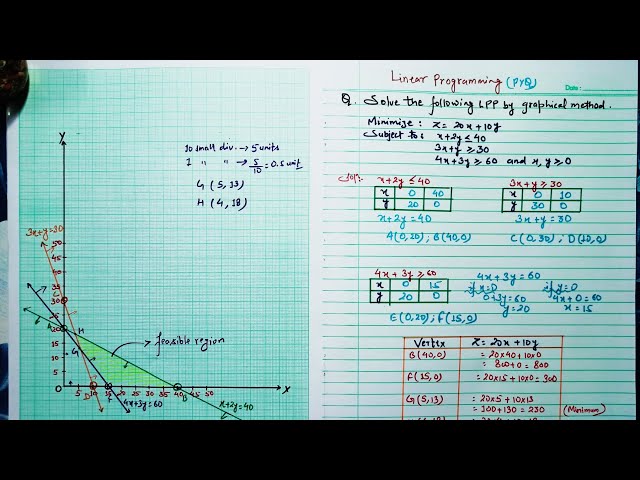 Linear Programming (PYQ)
Date:
Q. Solve the following LPP by graphical method.
Minimize: Z = 20x + 10y
Subject to: x + 2y ≤ 40
3x + y ≥ 30
4x + 3y ≥ 60 and x, y ≥ 0
Solⁿ:
x + 2y ≤ 40
x 0 40
y 20 0
x + 2y = 40
A(0,20), B(40,0)
3x + y ≥ 30
x 0 10
y 30 0
3x + y = 30
C(0,30), D(10,0)
4x + 3y ≥ 60
x 0 15
y 20 0
E(0,20), F(15,0)
4x + 3y = 60
if x = 0
0 + 3y = 60
y = 20
if y = 0
4x + 0 = 60
x = 15
Vertex Z = 20x + 10y
B(40,0) = 20x40 + 10x0
= 800 + 0 = 800
F(15,0) = 20x15 + 10x0 = 300
G(5,13) = 20x5 + 10x13
= 100 + 130 = 230 (Minimum)
10 small div. → 5 units
1 " " → 5/10 = 0.5 unit
G (5, 13)
H (4, 18)
Y
3x+y=30
50
45
40
35
30
25
20
15
10
5
0
C
A
H
G
feasible region
5 10 15 20 25 30 35 40 45 50
X
D
F
B
4x+3y=60
x+2y=40